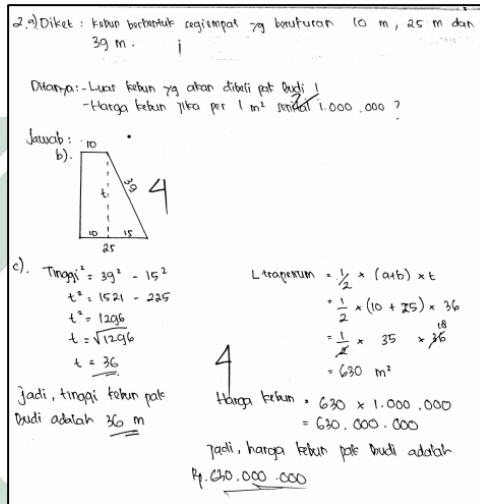 2. a) Diket : Kebun berbentuk segiempat yg berukuran 10 m, 25 m dan
39 m.
Ditanya : - Luas kebun yg akan dibeli pak Budi !
- Harga kebun jika per 1 m² senilai 1.000.000 ?
2
Jawab :
b).
10
t
39
4
10 15
25
c). Tinggi² = 39² - 15²
t² = 1521 - 225
t² = 1296
t = √1296
t = 36
jadi, tinggi kebun pak
Budi adalah 36 m
L trapesium = 1/2 × (a+b) × t
= 1/2 × (10 + 25) × 36
= 1/2 × 35 × 36 18
= 630 m²
4
Harga kebun = 630 × 1.000.000
= 630.000.000
Jadi, harga kebun pak Budi adalah
Rp. 630.000.000